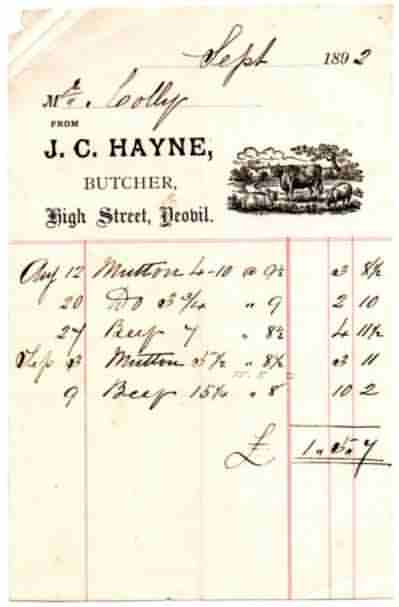 Sept 1892
Mr. Colly
FROM
J. C. HAYNE,
BUTCHER,
High Street, Yeovil.
Aug 12 Mutton 4-10 @ 9½ 3 8½
20 Do 3 3/4 " 9 2 10
27 Beef 7 " 8½ 4 11½
Sep 3 Mutton 5½ " 8½ 3 11
9 Beef 15¼ " 8 10 2
£ 1 " 5 " 7